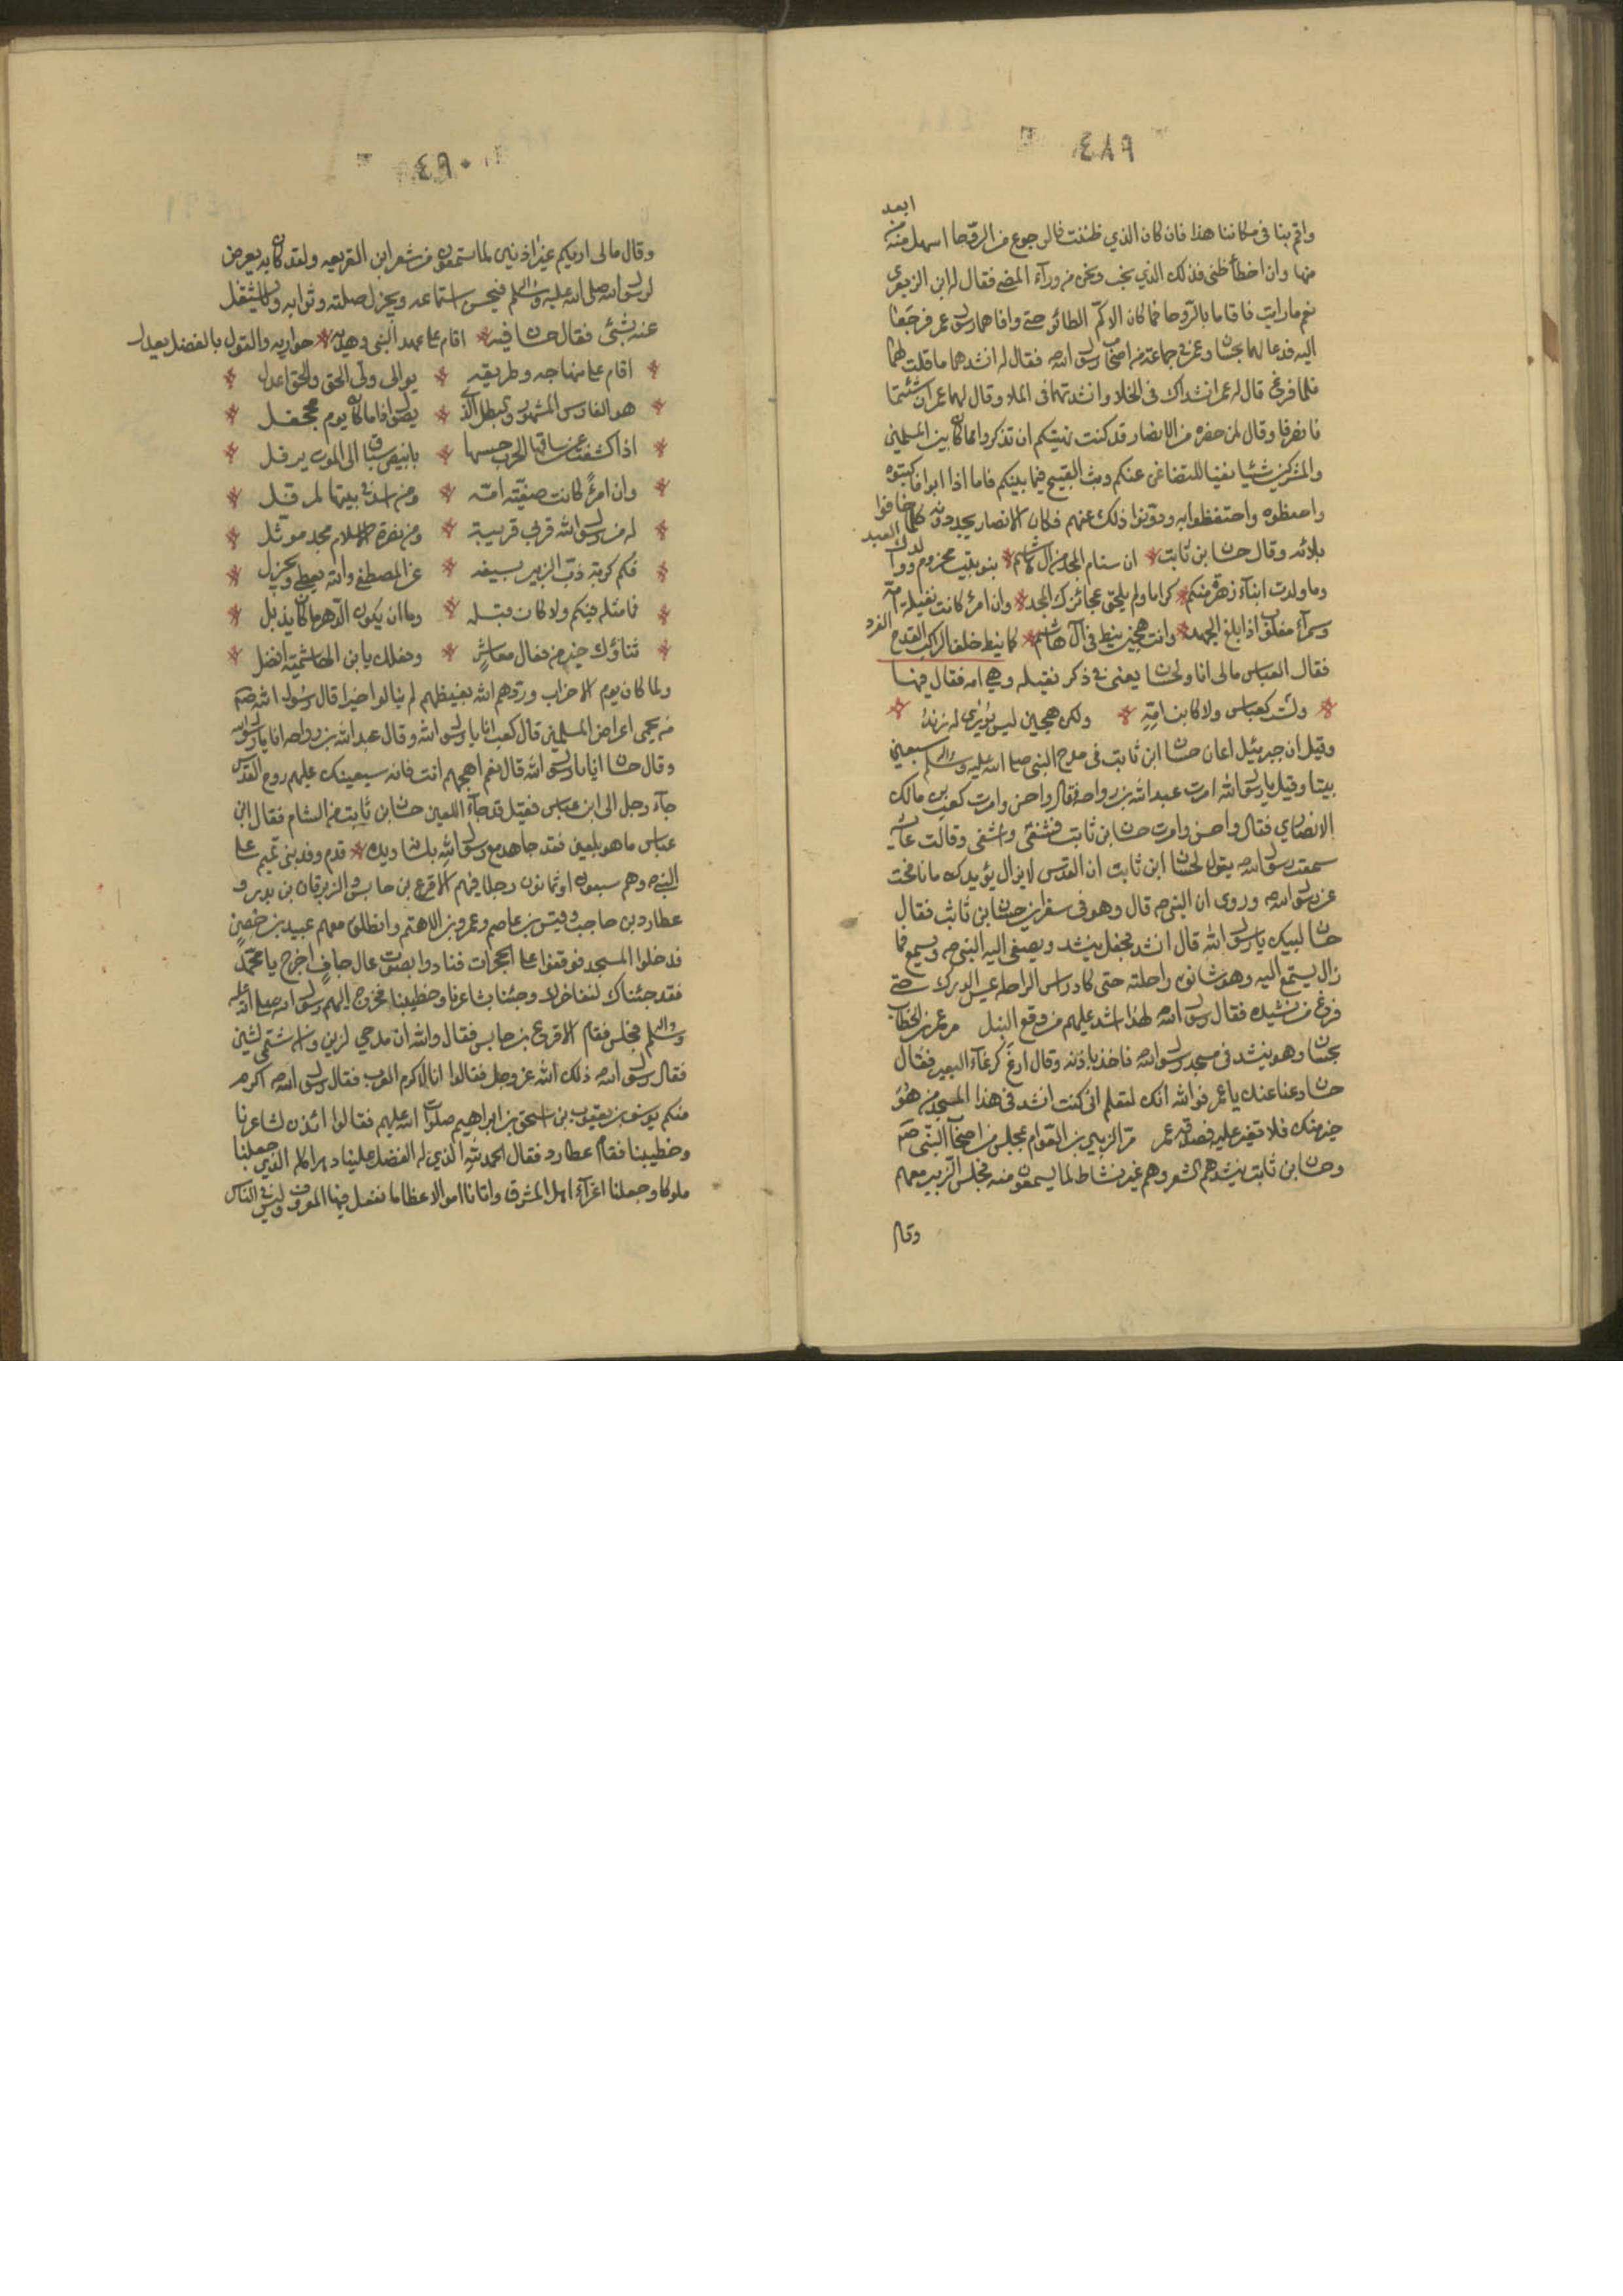 ٤٨٩
ابعد
واقم بنا فى مكاننا هذا فان كان الذي ظننت فالرجوع من الروحا اسهل منه من
منها وان اخطأ ظنى فذلك الذي نحب ونحن من ورآء المضى فقال له ابن الزبعرى
نعم ما رايت فاقاما بالروحا فما كان الا كمر الطائر حتى وافاهما رسول عمر فرجعا
اليه فدعا لهما بحسان وعمر فى جماعة من اصحاب رسول الله ص فقال له انشدهما ما قلت لهما
فلما فرغ قال له عمر انشداك فى الخلا وانشدتهما فى الملا وقال لهما عمر ان شئتما
فانصرفا وقال لمن حضره من الانصار قد كنت نهيتكم ان تذكروا مما كان بين المسلمين
والمشركين شيئا نفيا للتضاغن عنكم وبث القبيح فيما بينكم فاما اذا ابوا فاكتبوه
واحفظوه واحتفظوا به ودونوا ذلك عنهم فكان الانصار يجددونه كلما خافوا
بلائه وقال حسان بن ثابت ان سنام المجد من ال هاشم بنو بنت مخزوم ووالدك العبد
وما ولدت ابناء زهرة منكم كراما ولم يلحق عجائزك المجد وان امرء كانت نفيلة امه
وسمرآء مغلوب اذا بلغ الجهد وانت هجين نيط فى آل هاشم كما نيط خلف الراكب القدح الفرد
فقال العباس مالى انا ولحسان يعنى فى ذكر نفيله وهى امه فقال فيها
ولست كعباس ولا كابن امّه ولكن هجين ليس يورى له زند
وقيل ان جبرئيل اعان حسان ابن ثابت فى مدح النبى صلى الله عليه واله وسلم سبعين
بيتا وقيل يا رسول الله امرت عبد الله بن رواحه فقال واحسن وامرت كعب بن مالك
الانصاري فقال واحسن وامرت حسان بن ثابت فشفى واشفى وقالت عائشه
سمعت رسول الله ص يقول لحسان ابن ثابت ان روح القدس لا يزال يؤيدك ما نافحت
عن رسول الله ص وروى ان النبى ص قال وهو فى سفر اين حسان بن ثابت فقال
حسان لبيك يا رسول الله قال انشد فجعل ينشد ويصغى اليه النبى ص ويسمع فما
زال يستمع اليه وهو شانق راحلته حتى كاد راس الراحلة يمس الورك حتى
فرغ من نشيده فقال رسول الله ص لهذا اشد عليهم من وقع النبل مر عمر بن الخطاب
بحسان وهو ينشد فى مسجد رسول الله ص فاخذ باذنه وقال ارغ كرغآء البعير فقال
حسان دعنا عنك يا عمر فوالله انك لتعلم انى كنت انشد فى هذا المسجد من هو
خير منك فلا تغير عليه فصدقه عمر مرّ الزبير بن العوام بمجلس من اصحاب النبى ص
وحسان بن ثابت ينشدهم الشعر وهم غير نشاط لما يسمعون منه فجلس الزبير معهم
وقال
٤٩٠
وقال مالى اريكم غير اذنين لما تستمعون من شعر ابن الفريعه ولقد كان به يعرض
لرسول الله صلى الله عليه واله وسلم فيحسن استماعه ويجزل صلته وثوابه ولا يشتغل
عنه بشئ فقال حسان فيه اقام على عهد النبى وهديه حواريه والقول بالفضل يعدل
اقام على منهاجه وطريقه يوالى ولى الحق والحق اعدل
هو الفارس المشهور والبطل الذى يصول اذا ما كان يوم محجل
اذا كشفت عن ساقها الحرب حسها بابيض سباق الى الموت يرفل
وان امرءً كانت صفيّته امّه ومن اسد فى بيتها لمرفل
له من رسول الله قربى قريبة ومن نصرة الاسلام مجد موثل
فكم كربة ذبّ الزبير بسيفه عن المصطفى والله يعطى ويجزل
فما مثله فيكم ولا كان قبله وما ان يكون الدّهر ما كان يذبل
ثناؤك خير من فعال معاشرٍ وفعلك يا بن الهاشميّة افضل
ولما كان يوم الاحزاب وردهم الله بغيظهم لم ينالوا خيرا قال رسول الله ص
من يحمى اعراض المسلمين قال كعب انا يا رسول الله وقال عبد الله بن رواحه انا يا رسول الله
وقال حسان انا يا رسول الله قال نعم اهجهم انت فانه سيعينك عليهم روح القدس
جآء رجل الى ابن عباس فقيل قد جآء اللعين حسان بن ثابت من الشام فقال ابن
عباس ما هو بلعين فقد جاهد مع رسول الله بلسانه ويده قدم وفد بنى تميم على
النبى ص وهم سبعون او ثمانون رجلا فيهم الاقرع بن حابس والزبرقان بن بدر و
عطارد بن حاجب وقيس بن عاصم وعمرو بن الاهتم وانطلق معهم عيينه بن حصين
فدخلوا المسجد فوقفوا على الحجرات فنادوا بصوت عال جافٍ اخرج يا محمّد
فقد جئناك لنفاخرك وجئنا بشاعرنا وخطيبنا فخرج اليهم رسول الله صلى الله عليه
واله وسلم فجلس فقام الاقرع بن حابس فقال والله ان مدحي لزين وان شتمى لشين
فقال رسول الله ص ذلك الله عز وجل فقالوا انا اكرم العرب فقال رسول الله ص اكرم
منكم يوسف بن يعقوب بن اسحق بن ابراهيم صلوات الله عليهم فقالوا ائذن لشاعرنا
وخطيبنا فقام عطارد فقال الحمد لله الذي له الفضل علينا وهو اهله الذي جعلنا
ملوكا وجعلنا اعزّآء اهل المشرق واتانا اموالا عظاما نفعل فيها المعروف وليس فى الناس